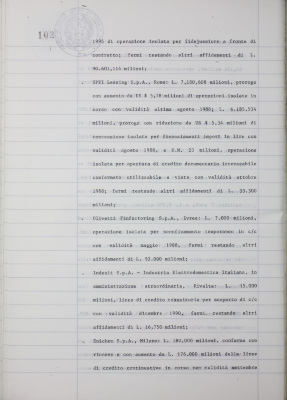 102
1995 di operazione isolata per fidejussione a fronte di
contratto; fermi restando altri affidamenti di L.
90.401,116 milioni;
- Leasing S.p.A., Roma: L. 7.150,668 milioni, proroga
con aumento da US $ 5,78 milioni di operazioni isolate in
euro con validità ultima agosto 1988; L. 6.180,534
milioni, proroga con riduzione da US $ 5,34 milioni di
isolata per finanziamenti import in lire con
validità agosto 1988, e D.M. 23 milioni, operazione
isolata per apertura di credito documentario irrevocabile
confermato utilizzabile a vista con validità ottobre
1988; fermi restando altri affidamenti di L. 33.300
milioni;
- Olivetti Finfactoring S.p.A., Ivrea: L. 7.000 milioni,
operazione isolata per sconfinamento temporaneo in c/c
con validità maggio 1988, fermi restando altri
affidamenti di L. 53.000 milioni;
- Indesit S.p.A. - Industria Elettrodomestica Italiana, in
amministrazione straordinaria, Rivalta: L. 15.000
milioni, linea di credito transitoria per scoperto di c/c
con validità dicembre 1990, fermi restando altri
affidamenti di L. 16,750 milioni;
- Enichem S.p.A., Milano: L. 180.000 milioni, conferma con
rinnovo e con aumento da L. 176.000 milioni delle linee
di credito continuative in corso con validità settembre